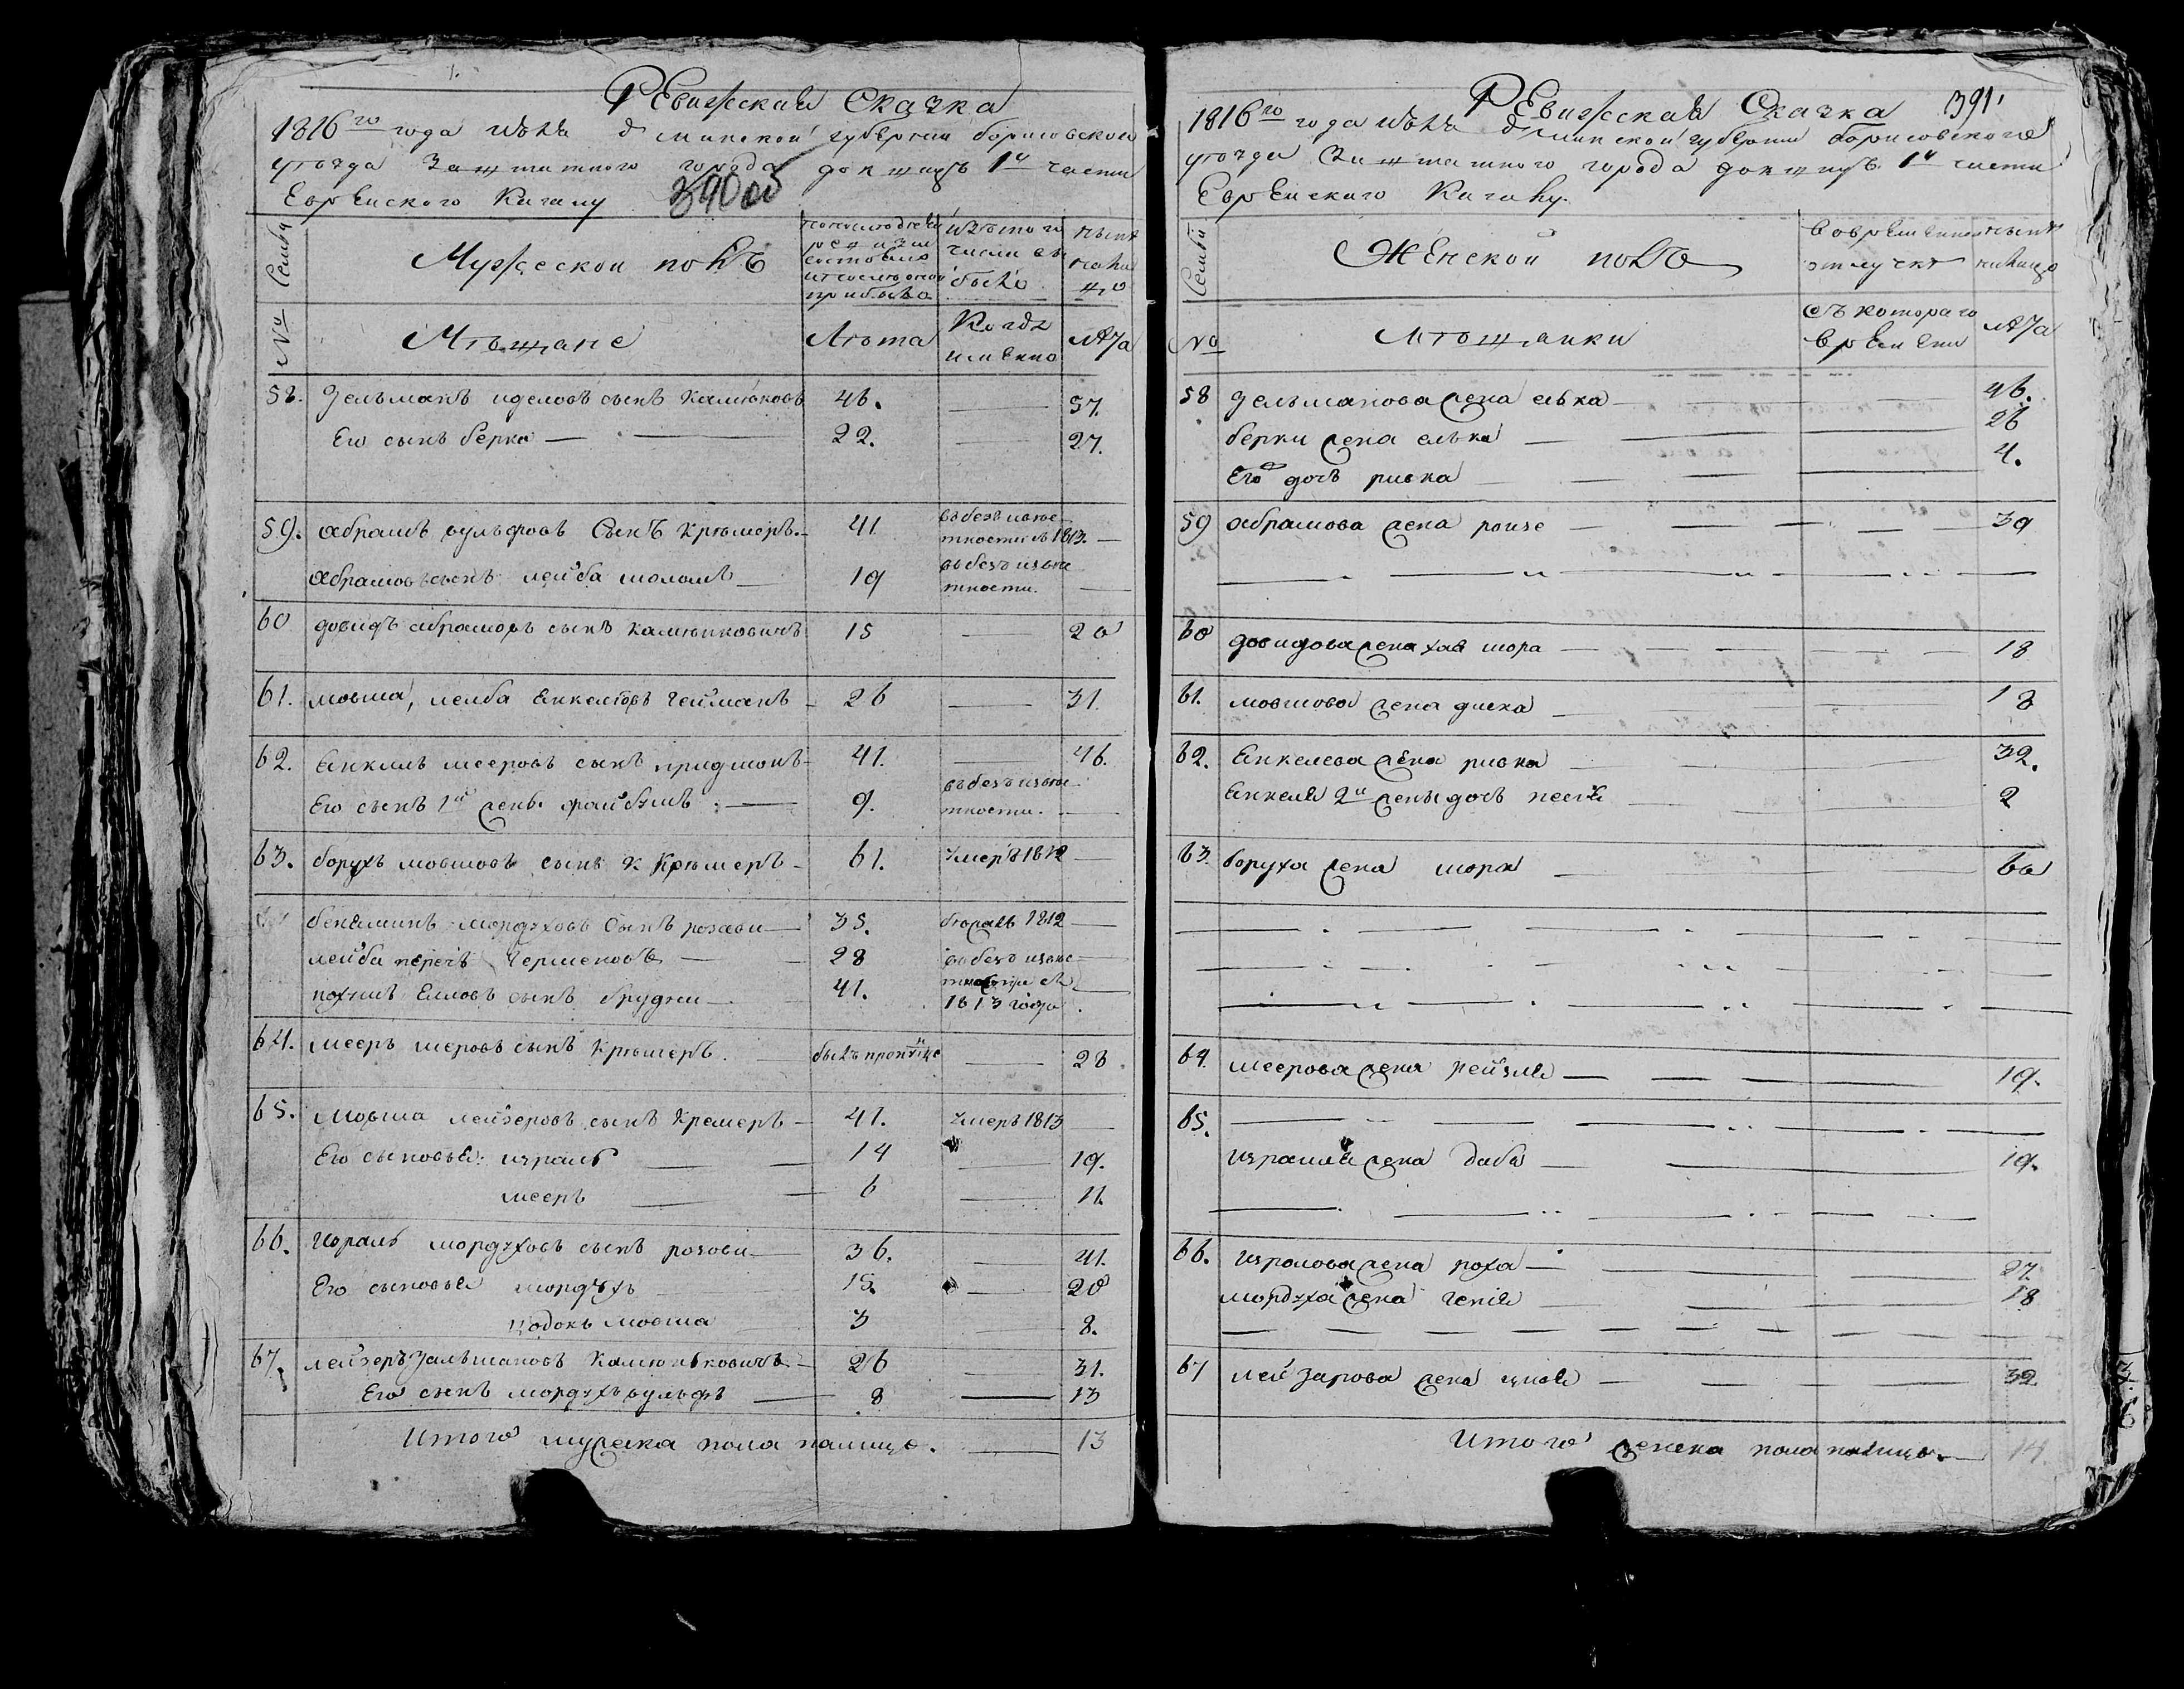 Ревижская Сказка
1816го года Июля д минской губернии борисовского
уѣзда Заштатного города докшицъ 1й части
Еврейского Кагалу 390 об
Семьи Мужеской полъ изтого числа выбыло нынѣ налицо
№ Мѣщане Лѣта Когда именно Лѣта
58. Зельманъ иделовъ сынъ Каменковъ 46. — 51.
Его сынъ берка — 22. — 27.
59. абрамъ вульфовъ Сынъ Крѣмеръ. 41 въ безъизвѣстности съ 1813. —
абрамовъ сынъ лейба шоломъ 19 въ безъизвѣстности. —
60 довидъ абрамовъ сынъ каменковичъ 15 — 20
61. мовша, лейба Енкелевъ Нейманъ 26 — 31.
62. Енкиль мееровъ сынъ придманъ 41. — 46.
Его сынъ 1й жены файбишъ 9. въ безъизвѣстности. —
63. борухъ мовшовъ сынъ К Крѣмеръ 61. Умеръ 1812 —
беняминъ мордуховъ Сынъ розови 35. бежалъ 1812 —
лейба перечъ Чермековъ 28 въ безъизвѣ —
41. 1813 года
64. мееръ меровъ сынъ Крѣмеръ. былъ — 28
65. Мовша лейзеровъ сынъ Кремеръ 41. Умеръ 1813 —
Его сыновья: израиль 14 — 19.
мееръ 6 — 11.
66. Израиль мордуховъ сынъ розови 36. — 41.
Его сыновья мордухъ 15. — 20
цодокъ мовша 3 — 8.
67. лейзеръ Зальмановъ Каменковичъ 26 — 31.
Его сынъ мордухъ вульфъ 8 — 13
Итого мужеска пола налицо. — 13
Ревижская Сказка 391
1816го года Июля д минской губернии борисовского
уѣзда Заштатного города докшицъ 1й части
Еврейского Кагалу.
Семьи Женской полъ вовременной отлучкѣ нынѣ налицо
№ Мѣщанки съ котораго времени Лѣта
58 Зельманова жена сывка 46.
берки жена елька 26
Его дочь ривка 4.
59 абрамова жена роизе 39
60 довидова жена хая шора 18
61. мовшова жена диска 18
62. Енкелева жена ривка 32.
Енкеля 2й жены дочь песія 2
63. боруха жена шора 60
64. меерова жена рейзля 19.
65.
израиля жена даба 19.
66. израилова жена роха 27.
мордуха жена генія 18
67 лейзарова жена ципа 32.
Итого женска пола налицо. — 14.